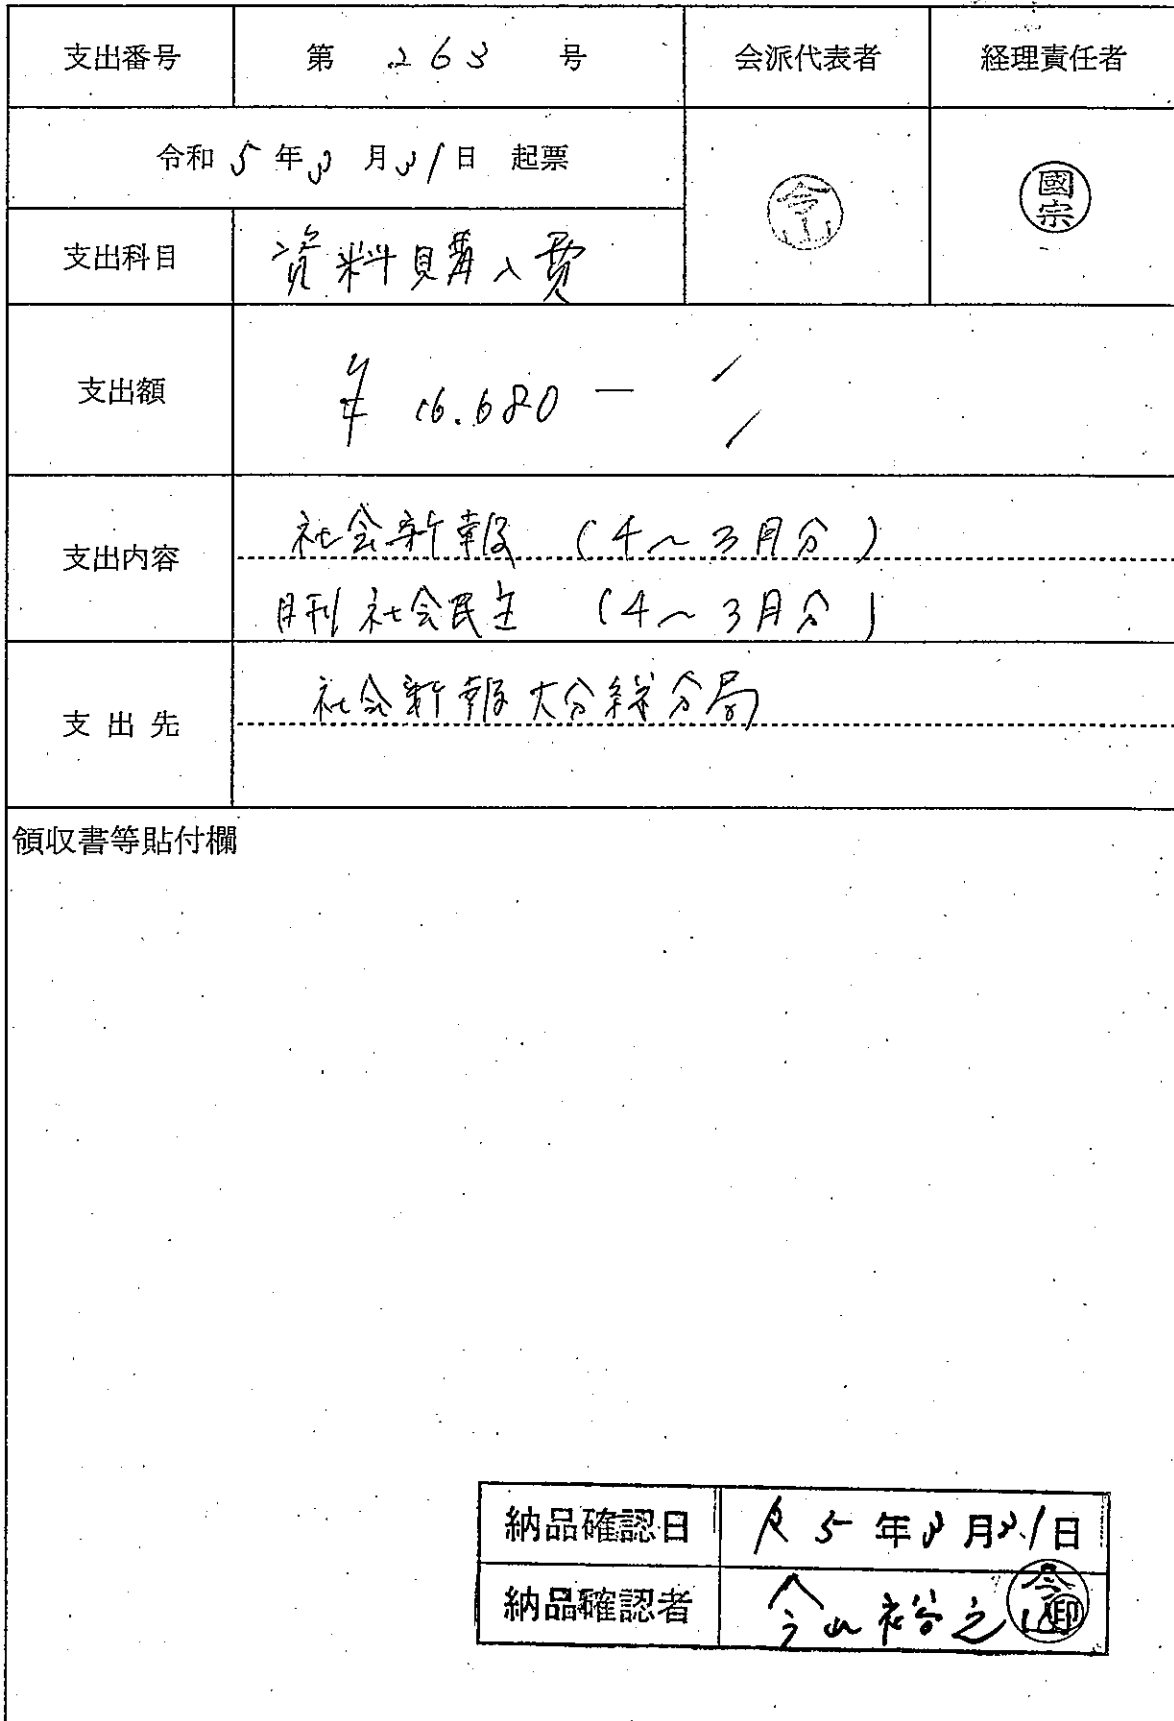 支出番号 第 263 号 会派代表者 経理責任者
令和 5 年 3 月 31 日 起票
國宗
支出科目 資料購入費
支出額 ¥ 16.680 ー
支出内容 社会新報 (4～3月分)
月刊社会民主 (4～3月分)
支出先 社会新報大分総分局
領収書等貼付欄
納品確認日 R 5 年 3 月 31 日
納品確認者 今山裕之